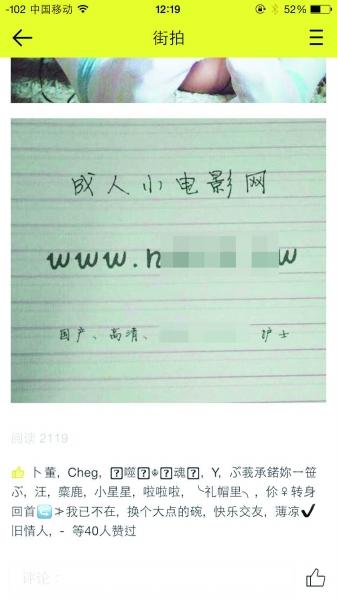 -102 中国移动 12:19 52%
街拍
成人小电影网
www.n w
国产、高清、 护士
阅读 2119
卜董，Cheg, 噬 魂 , Y, ぶ莪承鍩妳一笹
ぶ, 汪，糜鹿，小星星，啦啦啦，╰礼帽里╮, 伱♀转身
回首 ≯我已不在，换个大点的碗，快乐交友，薄凉✔
旧情人，- 等40人赞过
评论：